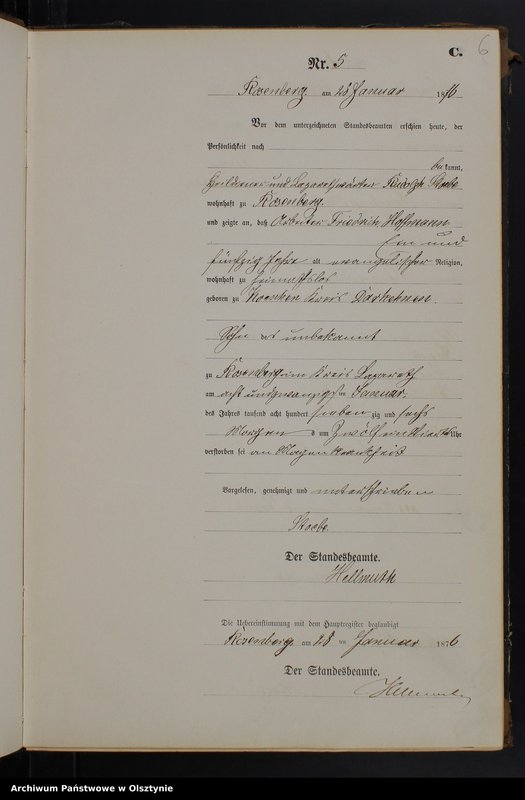 C.
6
Nr. 5
Rosenberg am 28 Januar 1876
Vor dem unterzeichneten Standesbeamten erschien heute, der
Persönlichkeit nach
bekannt,
und Lazarethwärter Rudolph Stoebe
wohnhaft zu Rosenberg.
und zeigte an, daß Arbeiter Friedrich Hoffmann
Ein und
fünfzig Jahre alt evangelischer Religion,
wohnhaft zu heimathslos
geboren zu Kreis Darkehmen.
Sohn der unbekannt
zu Rosenberg im Kreis Lazareth
am acht und zwanzigsten Januar
des Jahres tausend acht hundert siebenzig und sechs
Morgens um Zwölf einviertel Uhr
verstorben sei an Magenkrankheit
Vorgelesen, genehmigt und unterschrieben
Stoebe.
Der Standesbeamte.
Hellmuth
Die Uebereinstimmung mit dem Hauptregister beglaubigt
Rosenberg am 28 ten Januar 1876
Der Standesbeamte.
Hellmuth
Archiwum Państwowe w Olsztynie